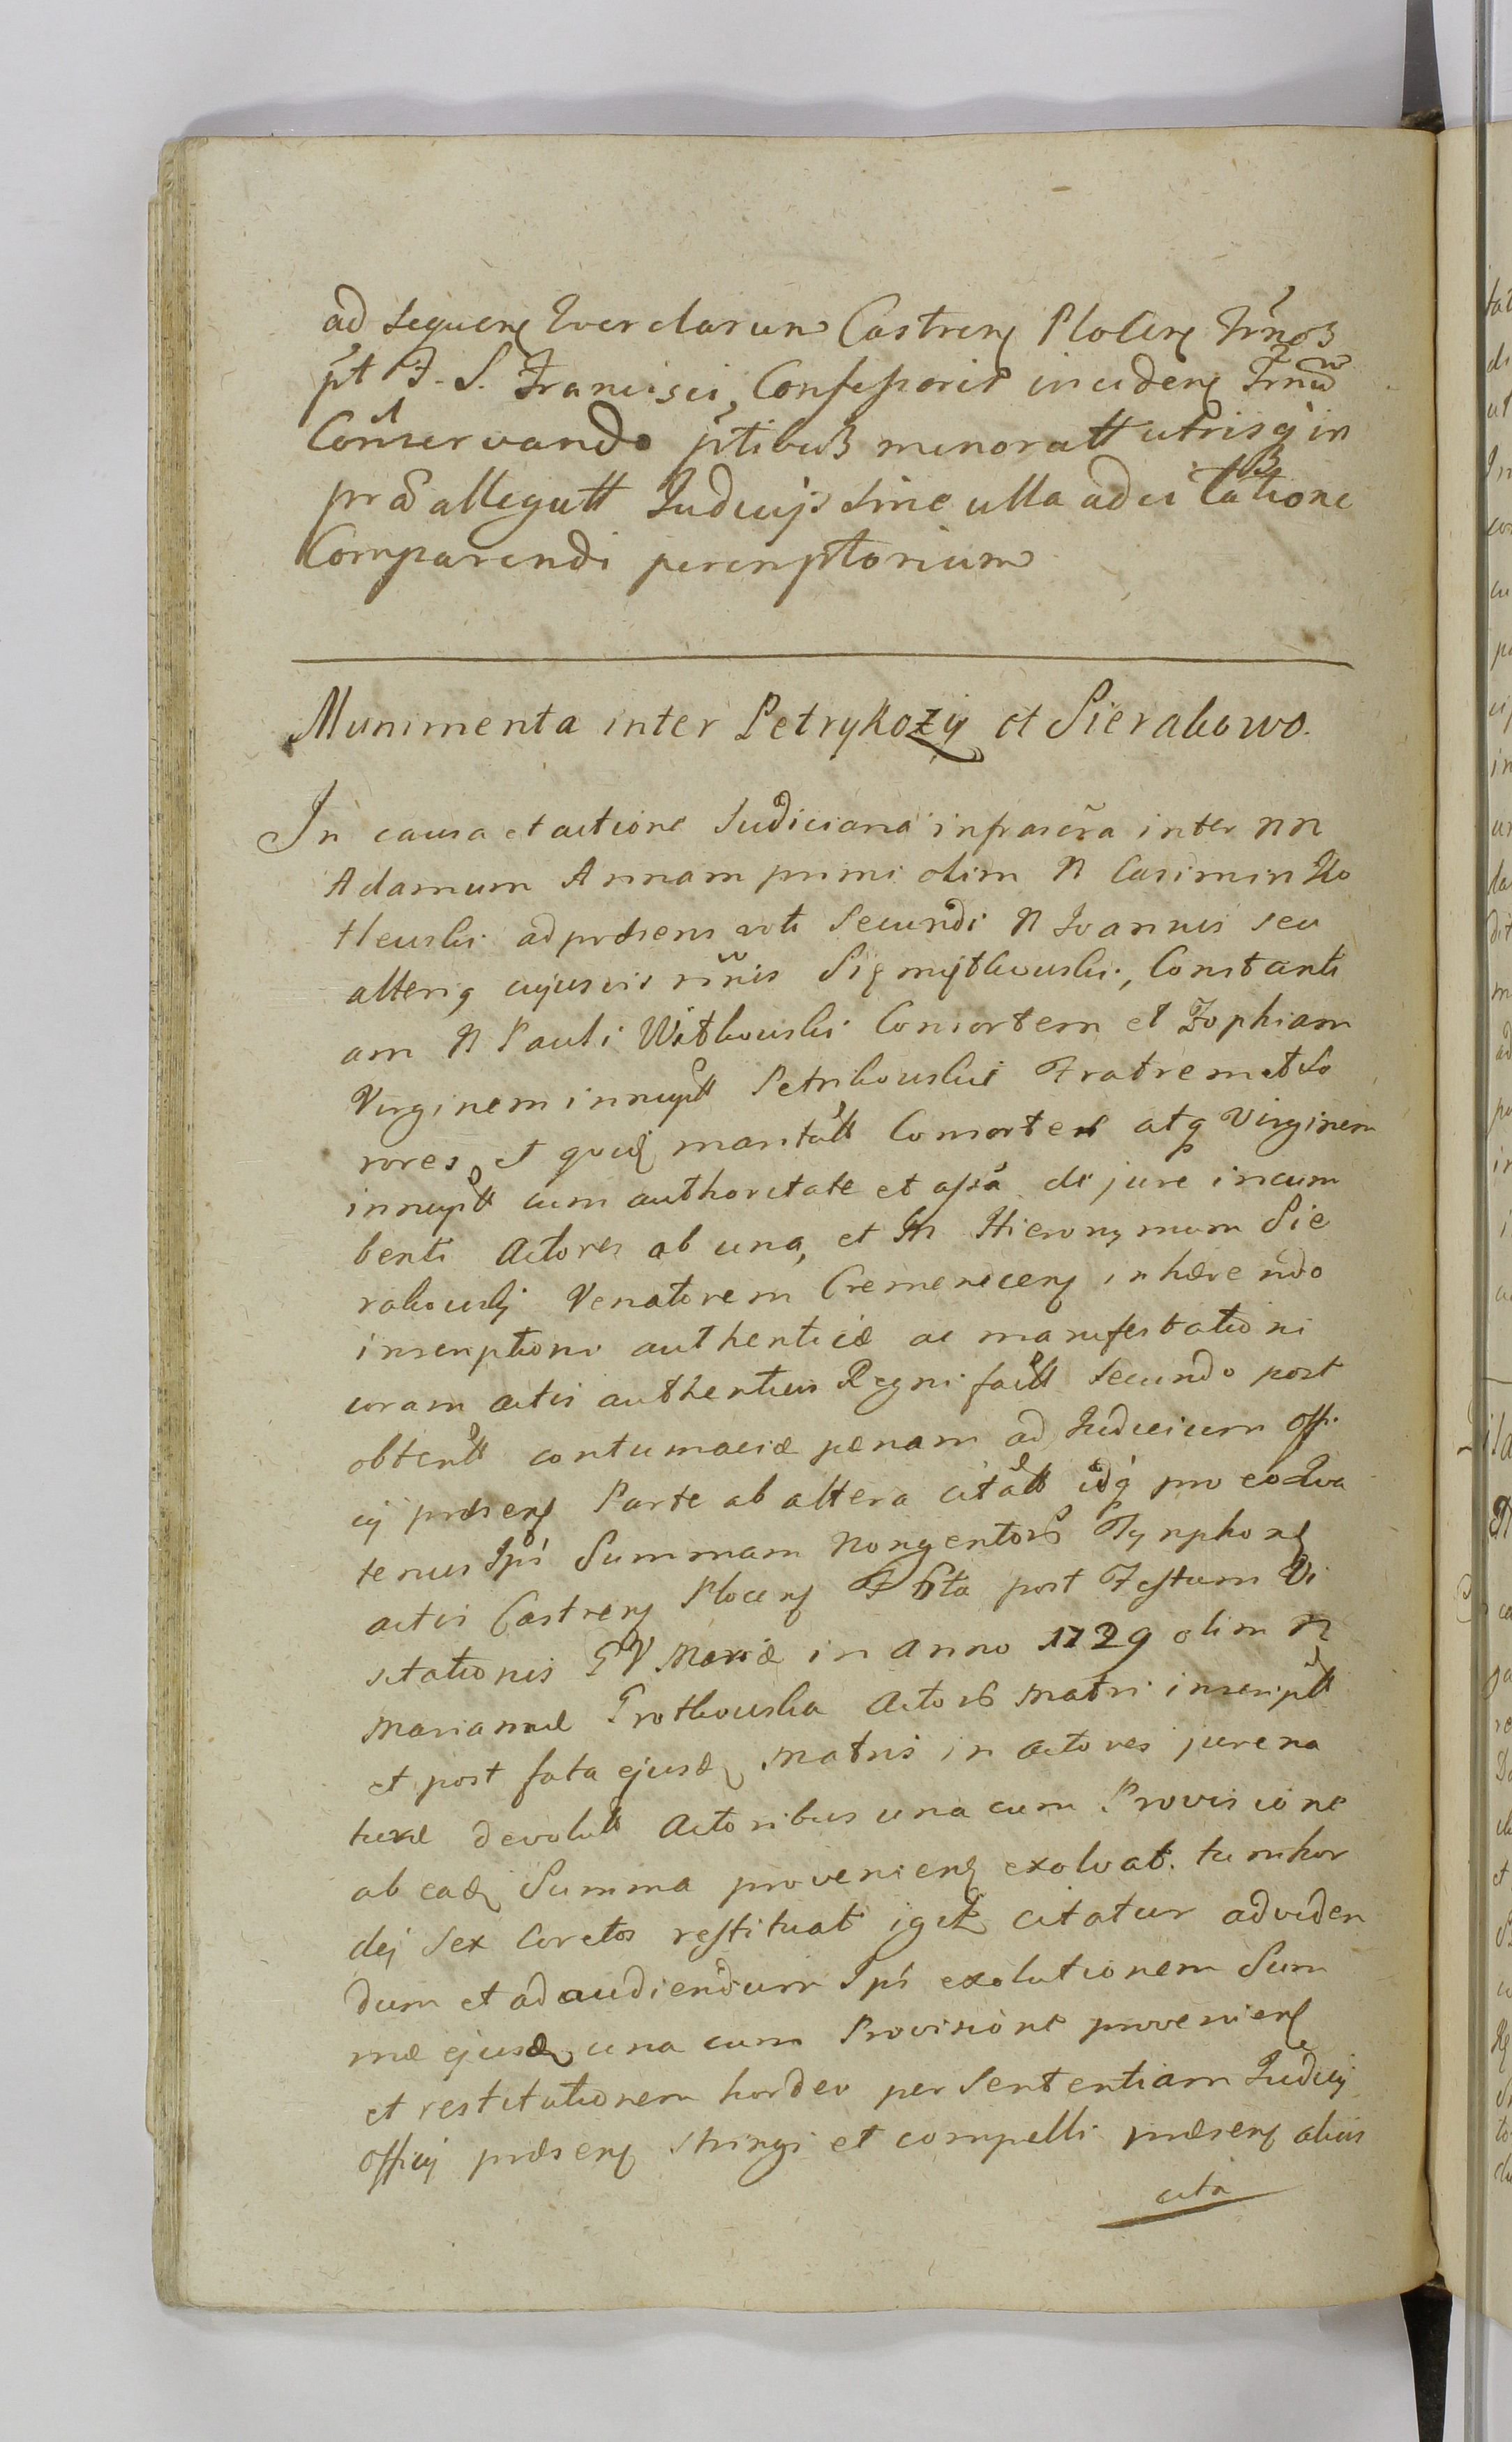 ad sequen Querelarum Castren Plocen Trnos
pt F. S. Francisci, Confessoris inciden Trnu
Conservando ptibus minoratt utrisq in
præallegatt Judicijs sine ulla adcitatione
Comparendi peremptorium
Munimenta inter Petrykozy et Sierakowo.
In causa et actione Judiciaria infrascra inter NN
Adamum Annam primi olim N Casimiri Ko
tleuski ad præsens voti secundi N Joannis seu
alterig cujusvis nnis Sigmytkouski, Constanti
am N Pauli Witkouski Consortem et Zophiam
Virginem innuptt Petrikouskie Fratrem et So
rores et quid maritatt Consortes atq Virginem
innuptt cum authoritate et assa de jure incum
benti Actores ab una, et M Hieronymum Sie
rakouskj Venatorem Cremenecen inhærendo
inscriptioni authenticæ ac manifestationi
coram actis authenticis Regni factt secundo post
obtentt contumaciæ pænam ad Judicium Offi
cij præsen Parte ab altera citatt idq pro eo Qua
tenus Ipsi Summam Nongentors Tynphon
actis Castren Plocen F 6ta post Festum Vi
sitationis B V Mariæ in anno 1729 olim N
Mariannæ Grotkouska Actors Matri inscriptt
et post fata ejusd Matris in actores jure na
turæ devolutt Actoribus una cum Provisione
ab ead Summa provenien exolvat. tum hor
dej sex Coretos restituat igitr citatur ad viden
dum et ad audiendum Ipsi exolutionem Sum
mæ ejusd una cum Provisione provenien
et restitutionem hordeo per Sententiam Judicij
Officij præsen stringi et compelli præsen aliis
cita